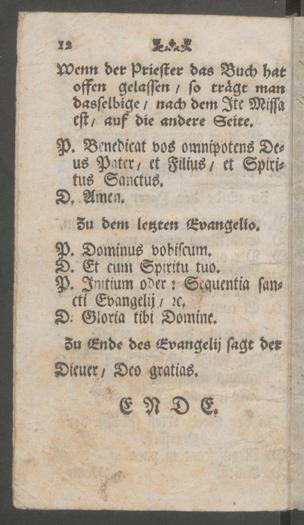 12
Wenn der Priester das Buch hat
offen gelassen / so trägt man
dasselbige / nach dem Ite Missa
est / auf die andere Seite.
P. Benedicat vos omnipotens De-
us Pater / et Filius / et Spiri-
tus Sanctus.
D. Amen.
Zu dem letzten Evangelio.
P. Dominus vobiscum.
D. Et cum Spiritu tuo.
P. Initium oder: Sequentia san-
cti Evangelij / ꝛc.
D. Gloria tibi Domine.
Zu Ende des Evangelij sagt der
Diener / Deo gratias.
E N D E.